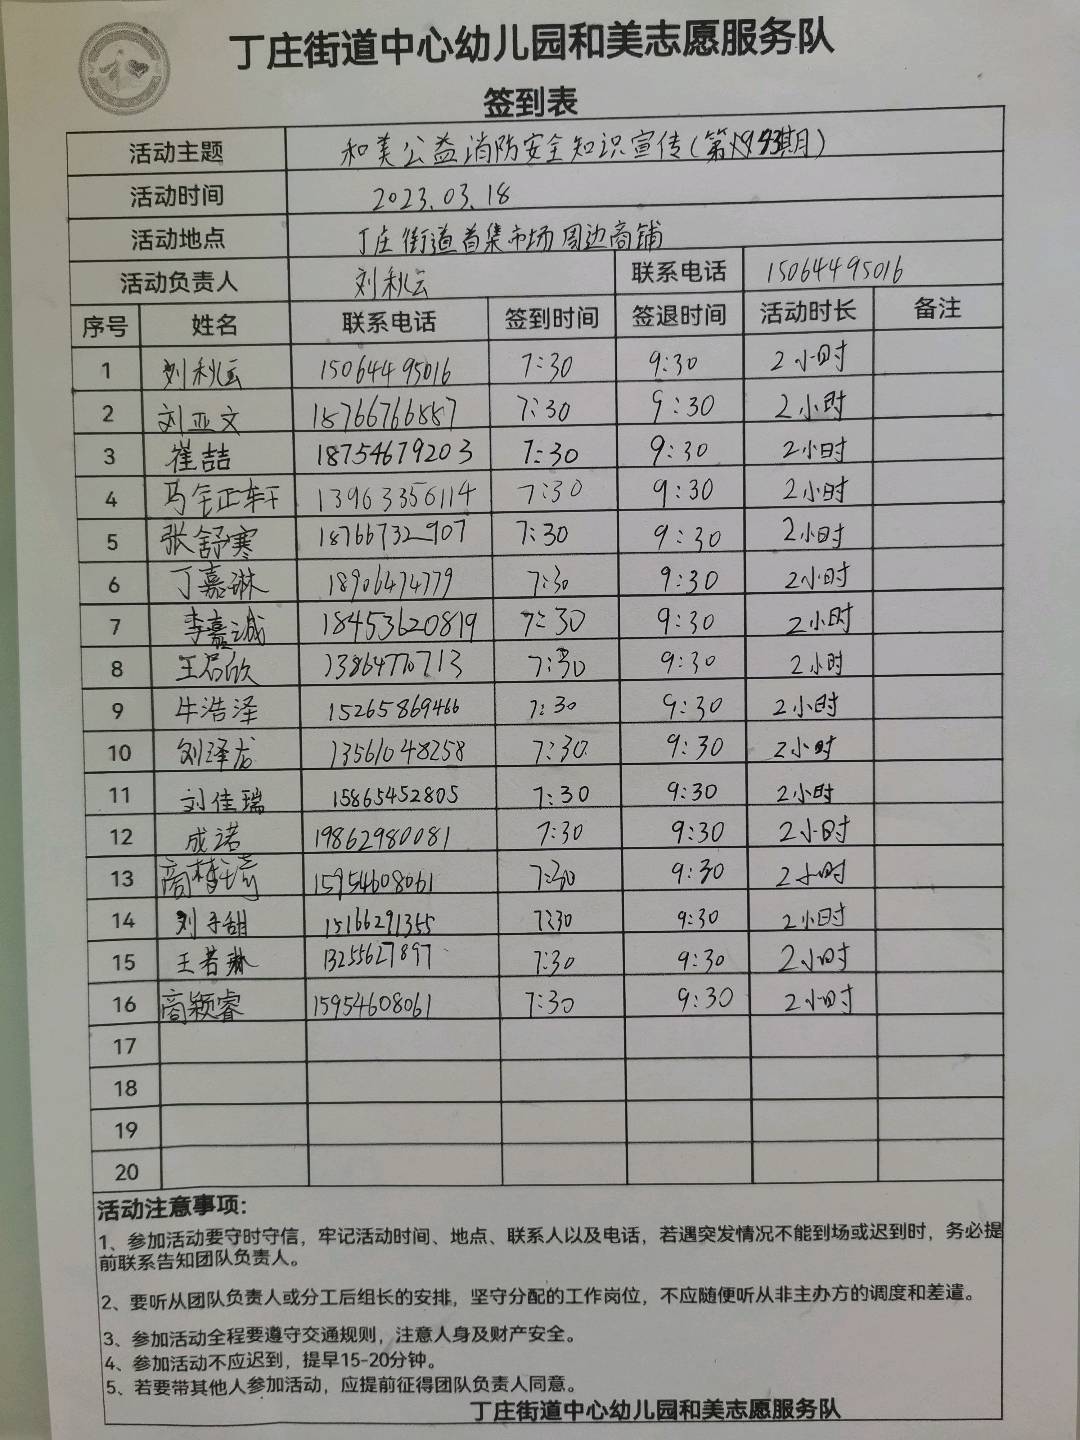 丁庄街道中心幼儿园和美志愿服务队
签到表
活动主题 和美公益消防安全知识宣传(第 期)
活动时间 2023.03.18
活动地点 丁庄街道首集市场周边商铺
活动负责人 刘秋云 联系电话 15064495016
序号 姓名 联系电话 签到时间 签退时间 活动时长 备注
1 刘秋云 15064495016 7:30 9:30 2小时
2 刘亚文 18766766887 7:30 9:30 2小时
3 崔喆 18754679203 7:30 9:30 2小时
4 马 正轩 13963356114 7:30 9:30 2小时
5 张舒寒 18766732907 7:30 9:30 2小时
6 丁嘉琳 18906474779 7:30 9:30 2小时
7 李嘉诚 18453620819 7:30 9:30 2小时
8 王 欣 13864770713 7:30 9:30 2小时
9 牛浩泽 15265869466 7:30 9:30 2小时
10 刘泽龙 13561048258 7:30 9:30 2小时
11 刘佳瑞 15865452805 7:30 9:30 2小时
12 成诺 19862980081 7:30 9:30 2小时
13 商梦琦 15954608061 7:30 9:30 2小时
14 刘子甜 15166291355 7:30 9:30 2小时
15 王若琳 13255627897 7:30 9:30 2小时
16 商颖睿 15954608061 7:30 9:30 2小时
17
18
19
20
活动注意事项:
1、参加活动要守时守信，牢记活动时间、地点、联系人以及电话，若遇突发情况不能到场或迟到时，务必提
前联系告知团队负责人。
2、要听从团队负责人或分工后组长的安排，坚守分配的工作岗位，不应随便听从非主办方的调度和差遣。
3、参加活动全程要遵守交通规则，注意人身及财产安全。
4、参加活动不应迟到，提早15-20分钟。
5、若要带其他人参加活动，应提前征得团队负责人同意。
丁庄街道中心幼儿园和美志愿服务队